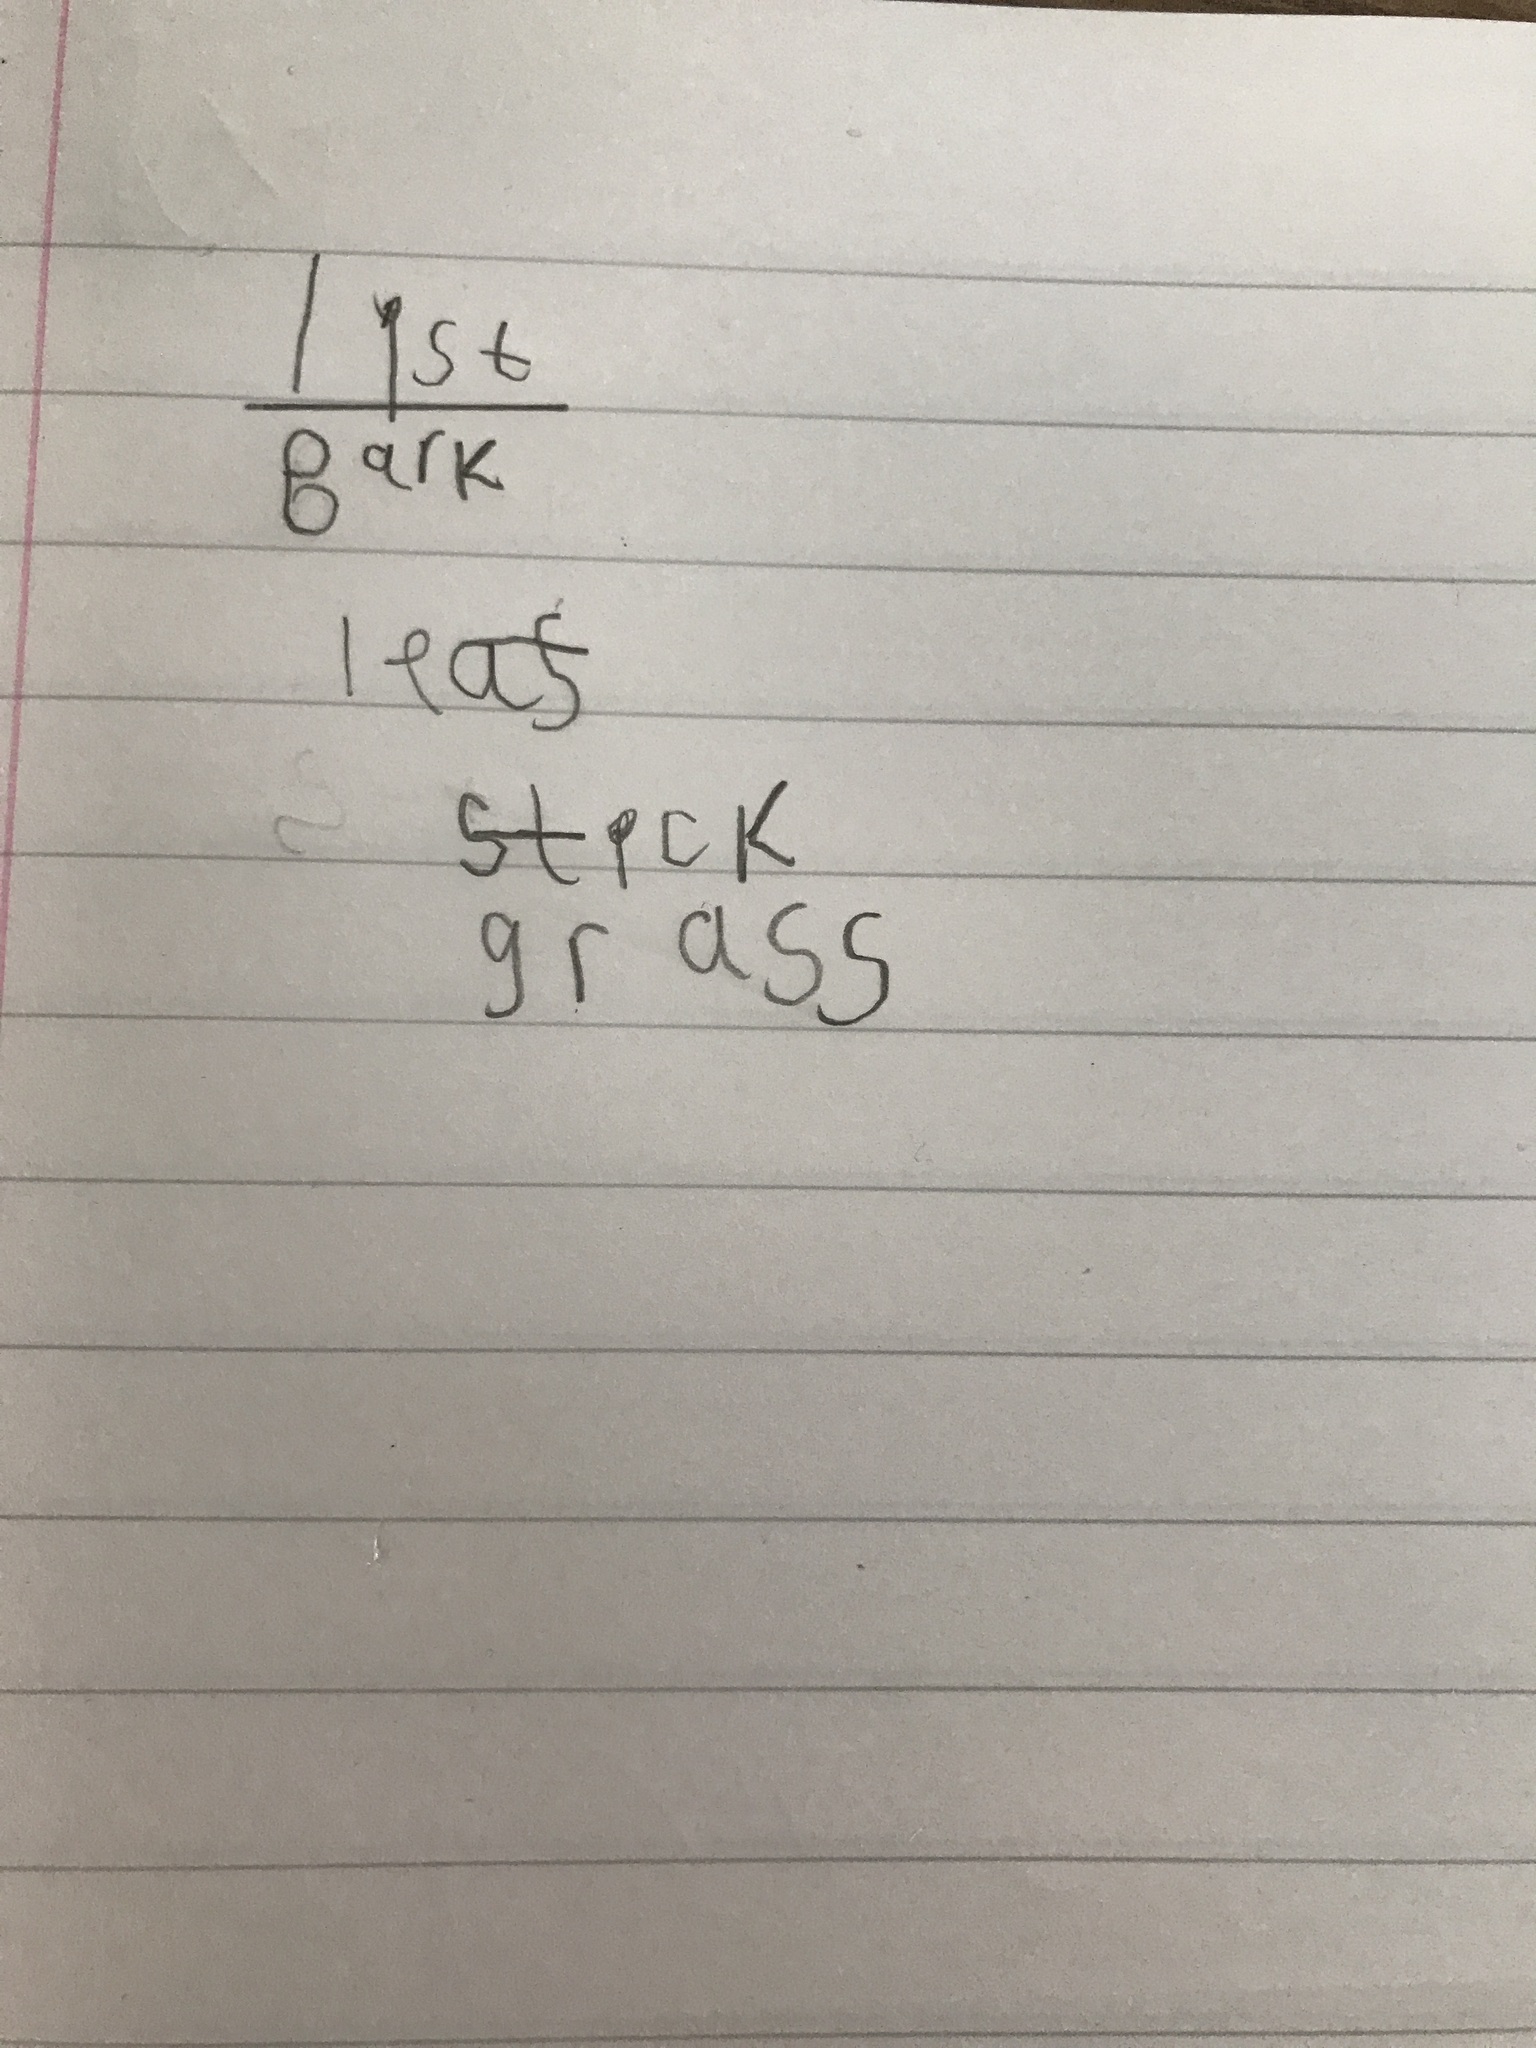 list
Bark
leaf
stick
grass